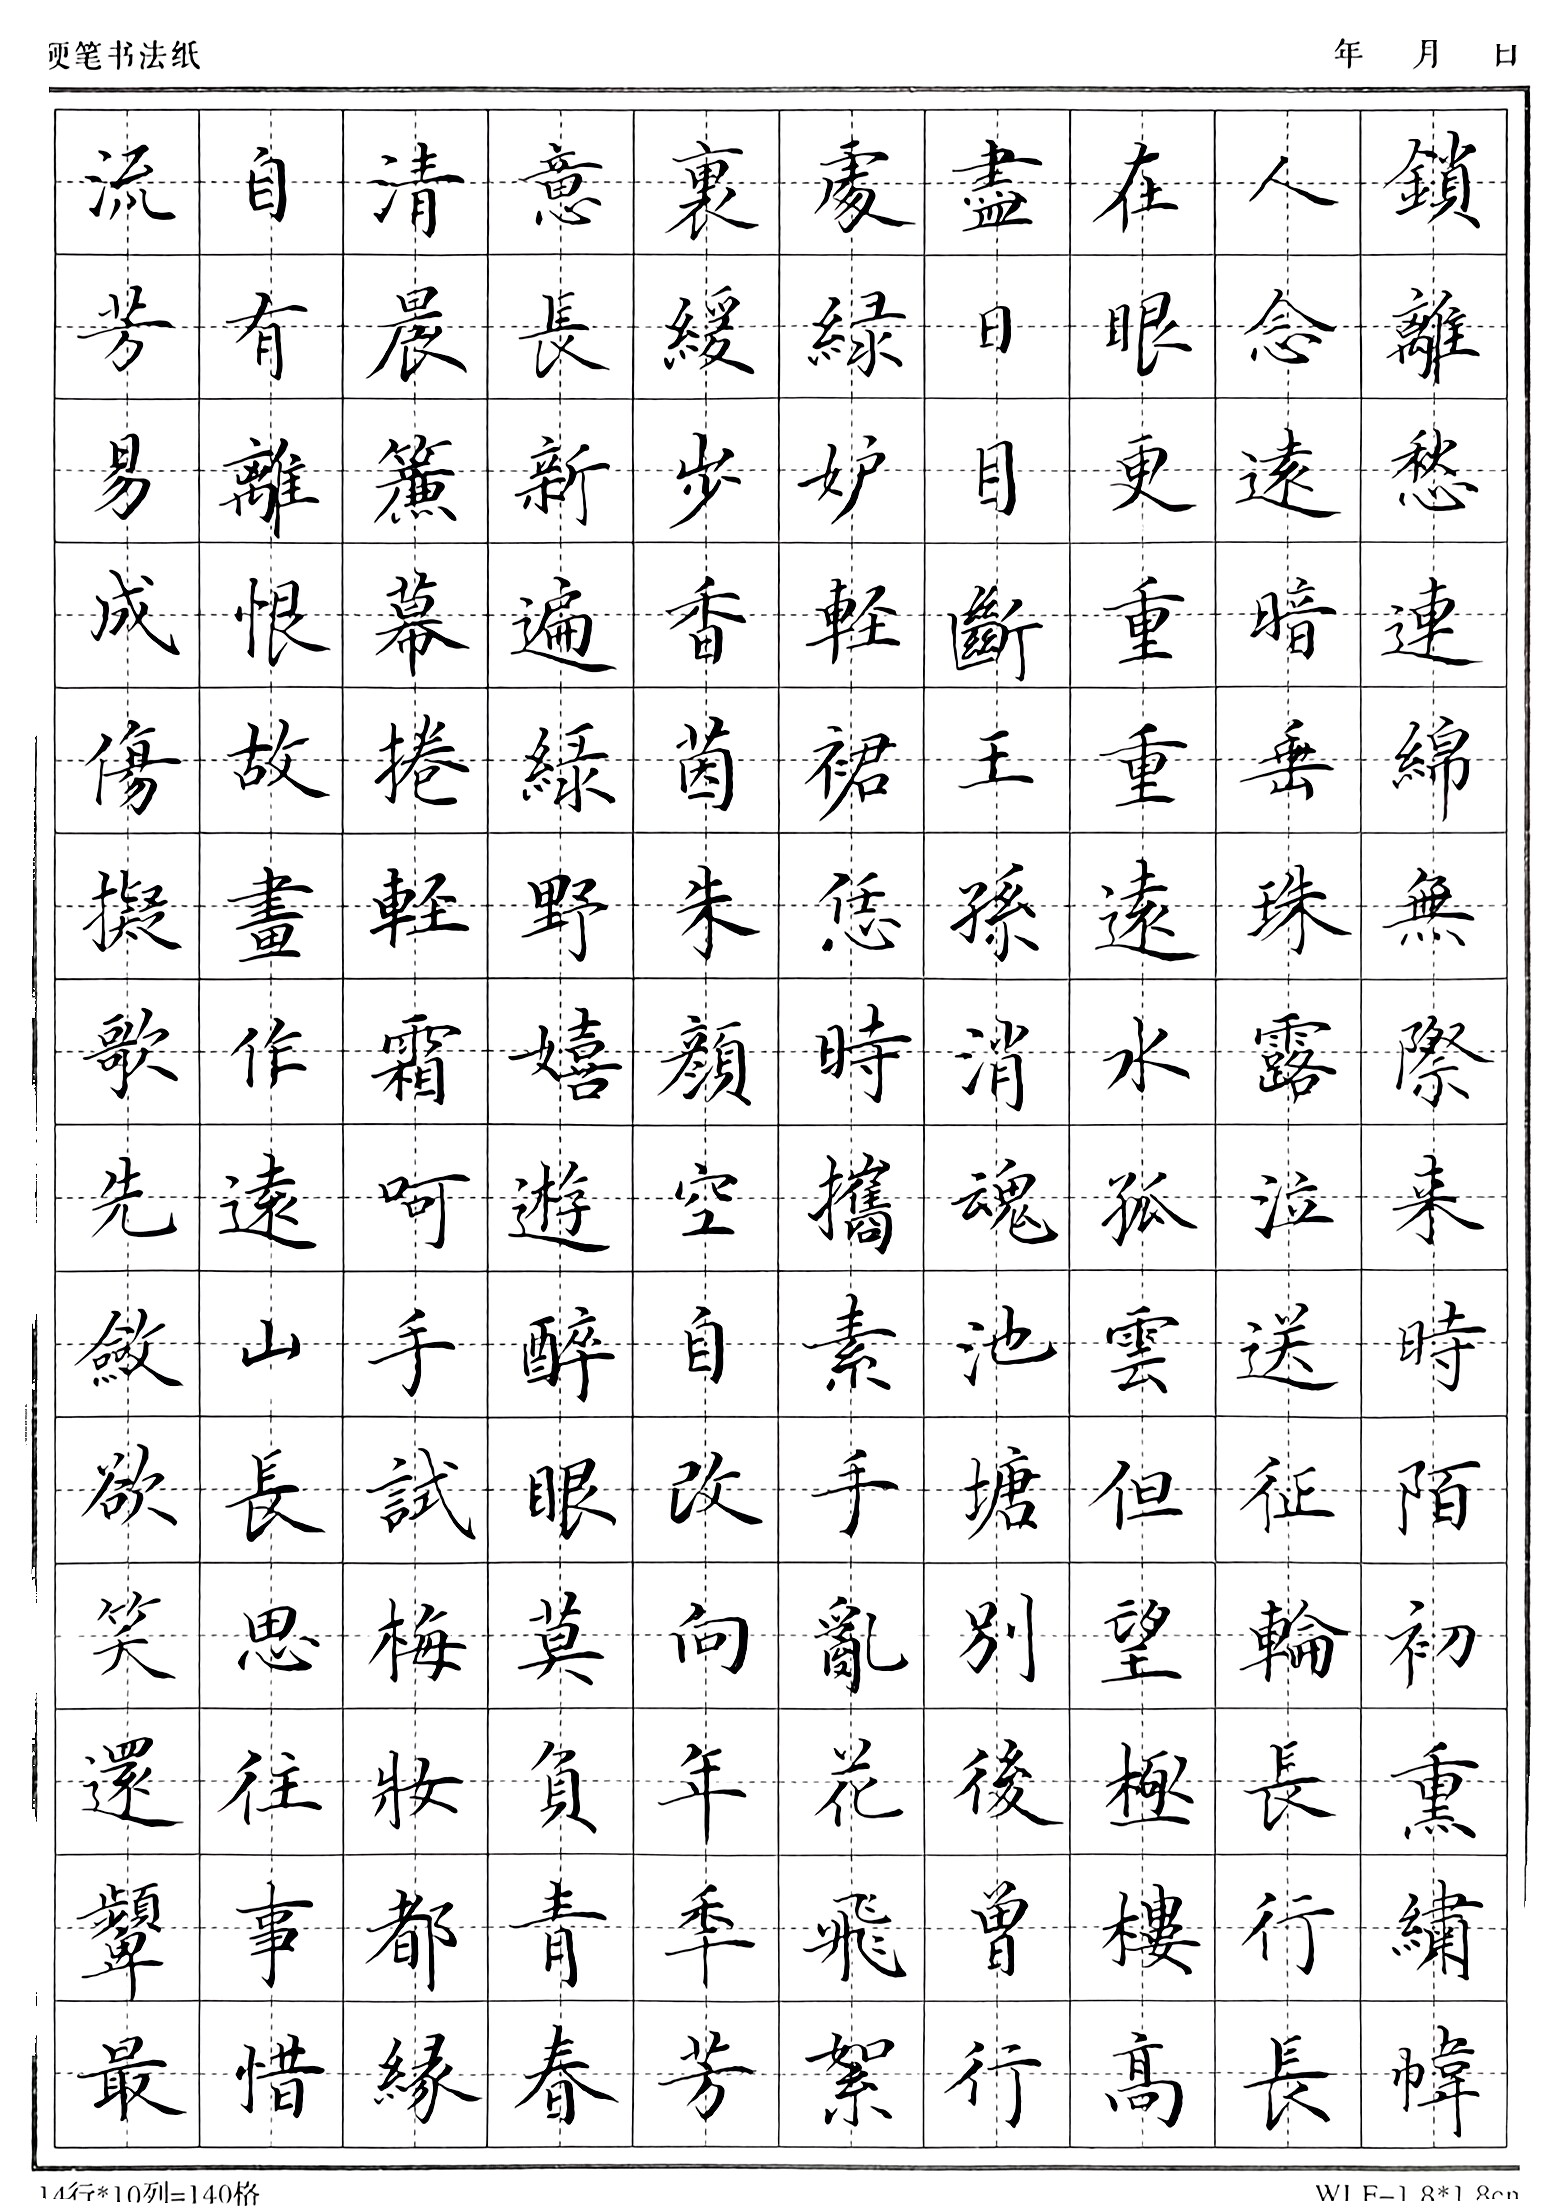 硬笔书法纸 年 月 日
鎖離愁連綿無際来時陌初熏繡幃
人念遠暗垂珠露泣送征輪長行長
在眼更重重遠水孤雲但望極樓高
盡日目斷王孫消魂池塘別後曾行
處緑妒輕裙恁時攜素手亂花飛絮
裏緩步香茵朱顔空自改向年年芳
意長新遍緑野嬉遊醉眼莫負青春
清晨簾幕捲輕霜呵手試梅妝都緣
自有離恨故畫作遠山長思往事惜
流芳易成傷擬歌先斂欲笑還顰最
14行*10列=140格 WLF-1.8*1.8cm